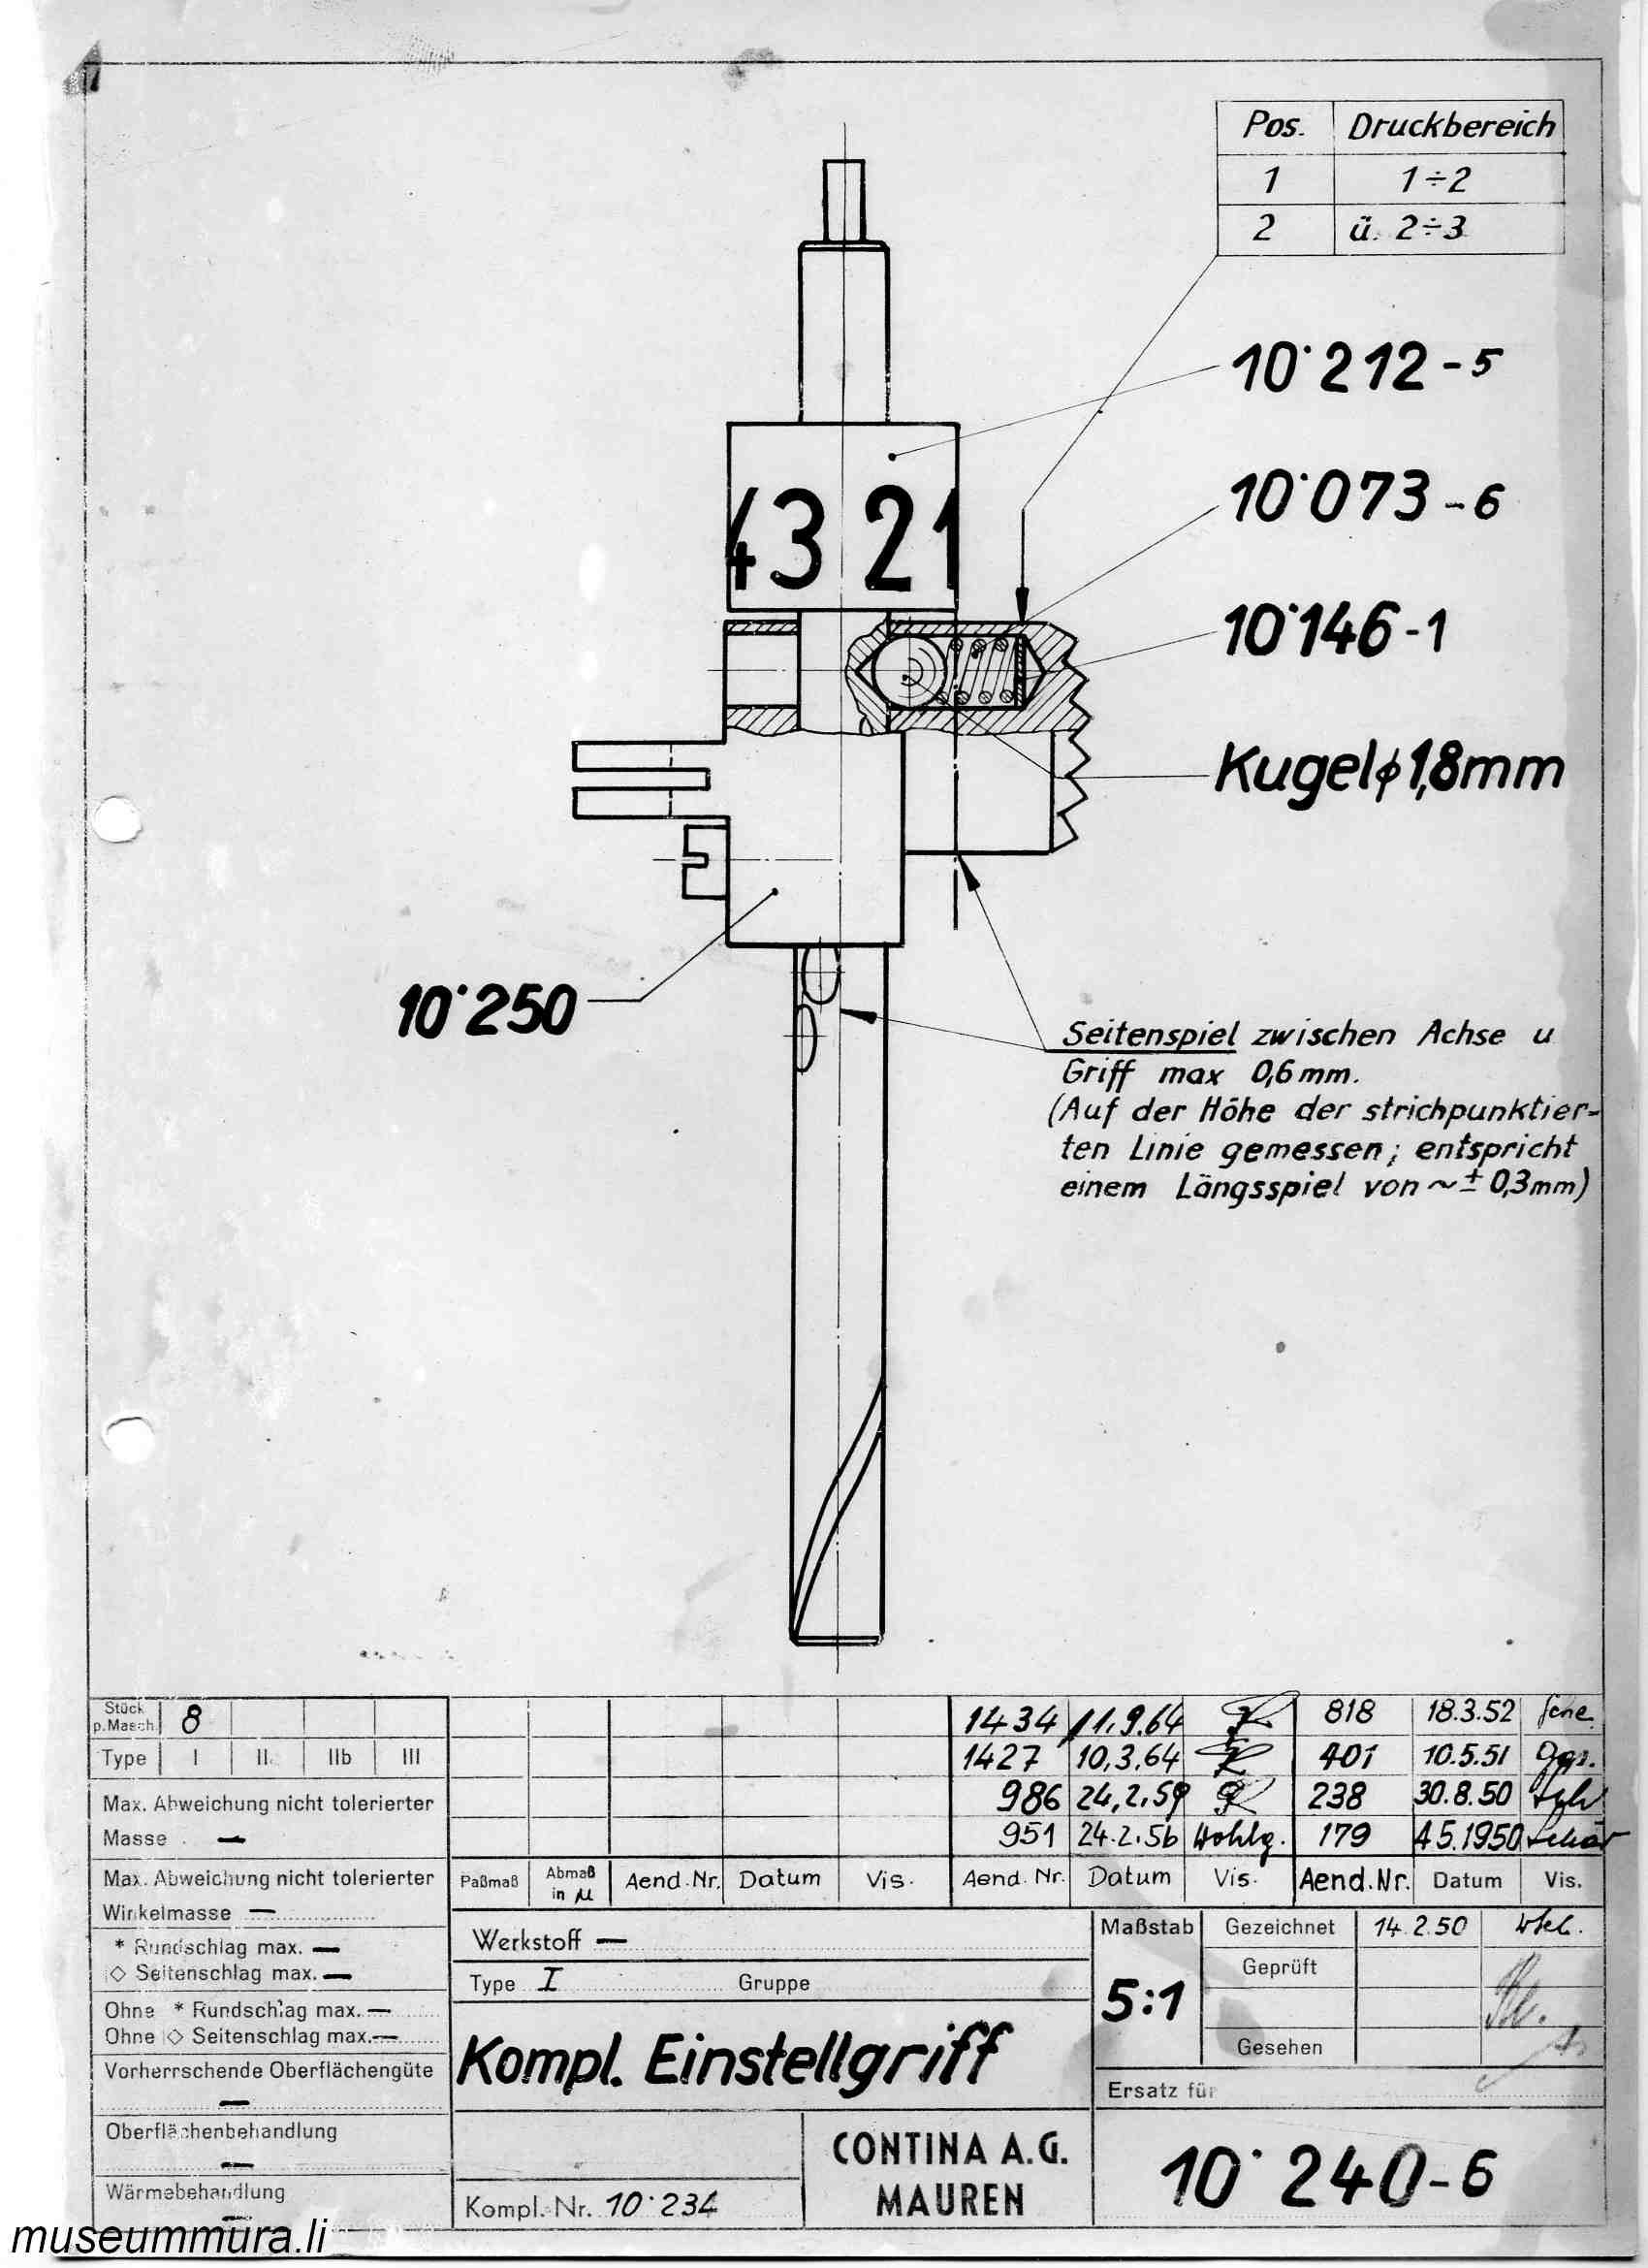 Pos. Druckbereich
1 1÷2
2 ü. 2÷3
10·212-5
10·073-6
10·146-1
Kugel⌀1,8mm
4321
10·250
Seitenspiel zwischen Achse u
Griff max 0,6mm.
(Auf der Höhe der strichpunktier-
ten Linie gemessen; entspricht
einem Längsspiel von ~± 0,3mm)
Stück
p.Masch. 8
Type I II. IIb III
Max. Abweichung nicht tolerierter
Masse . —
Max. Abweichung nicht tolerierter
Winkelmasse —
* Rundschlag max. —
◇ Seitenschlag max. —
Ohne * Rundschlag max. —
Ohne ◇ Seitenschlag max. —
Vorherrschende Oberflächengüte
—
Oberflächenbehandlung
—
Wärmebehandlung
—
1434 11.9.64 818 18.3.52
1427 10.3.64 401 10.5.51
986 24.2.59 238 30.8.50
951 24.2.56 179 4.5.1950
Paßmaß Abmaß in µ Aend.Nr. Datum Vis. Aend.Nr. Datum Vis. Aend.Nr. Datum Vis.
Werkstoff —
Type I Gruppe
Kompl. Einstellgriff
Kompl.-Nr. 10·234
CONTINA A.G.
MAUREN
Maßstab
5:1
Gezeichnet 14.2.50
Geprüft
Gesehen
Ersatz für
10·240-6
museummura.li